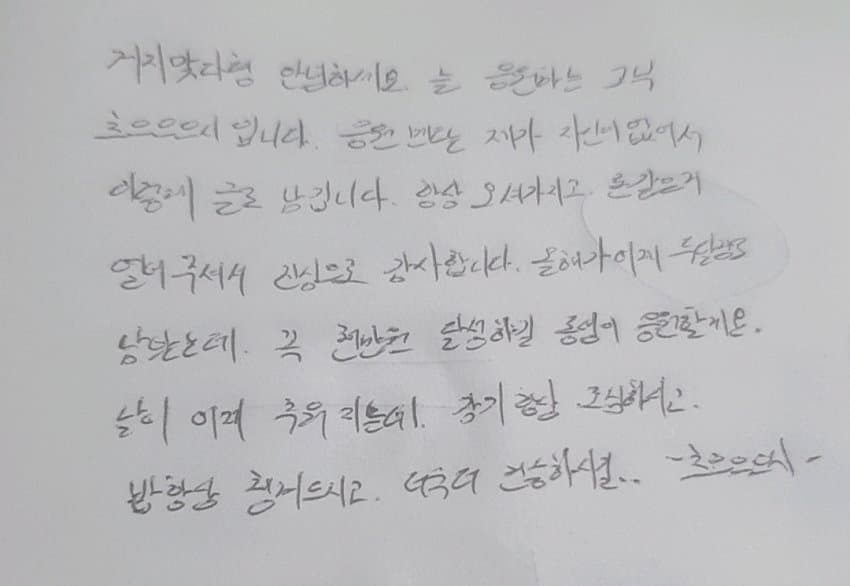 거지맞다형 안녕하세요. 늘 응원하는 그부
츠으으으시 입니다. 응원 한다는 제가 자신이 없어서
이렇게 글로 남깁니다. 항상 오셔가지고
열어주셔서 진심으로 감사합니다. 올해가 이제 두달정도
남았는데. 꼭 천만원 달성하길 응원할게요.
날이 이제 추워 지는데. 감기 항상 조심하시고.
밥 항상 챙겨드시고. 더욱더 건승하시길.. -츠으으으시-